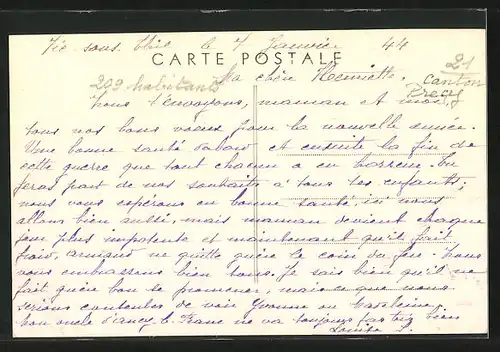 Vic sous Thil le 7 Janvier 44
CARTE POSTALE
21
209 habitants
canton
Precy
Ma chère Henriette.
Nous t'envoyons, maman et moi,
tous nos bons voeux pour la nouvelle année.
Une bonne santé d'abord et ensuite la fin de
cette guerre que tout chacun a en horreur. Tu
feras part de nos souhaits à tous tes enfants;
nous vous espérons en bonne santé, ici nous
allons bien aussi, mais maman devient chaque
jour plus impotente et maintenant qu'il fait
froid, armand ne quitte guère le coin du feu. Nous
vous embrassons bien tous. Je sais bien qu'il ne
fait guère bon se promener, mais ce que nous
serions contentes de voir Yvonne ou Madeleine,
mon oncle d'ancy le Franc ne va toujours pas très bien
Louise L.